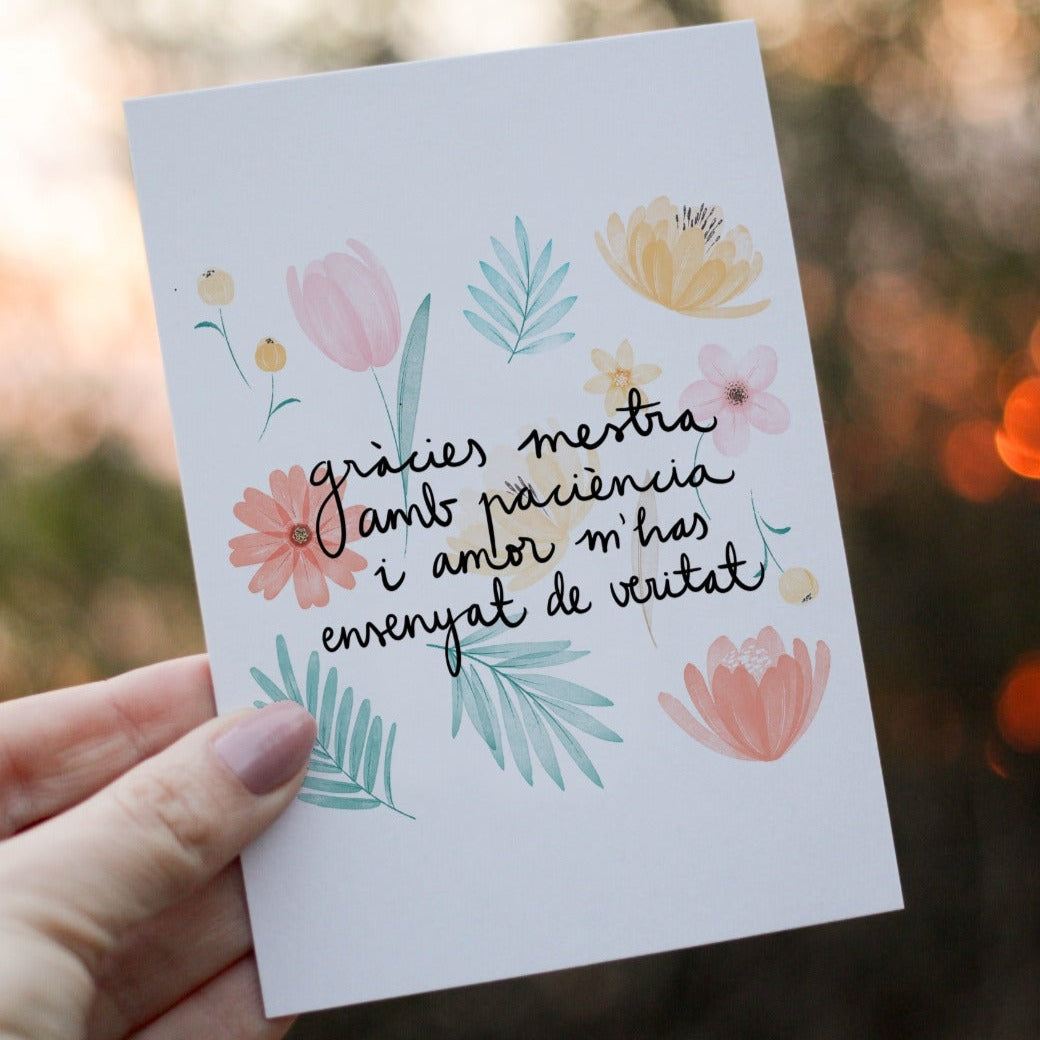 gràcies mestra
amb paciència
i amor m'has
ensenyat de veritat